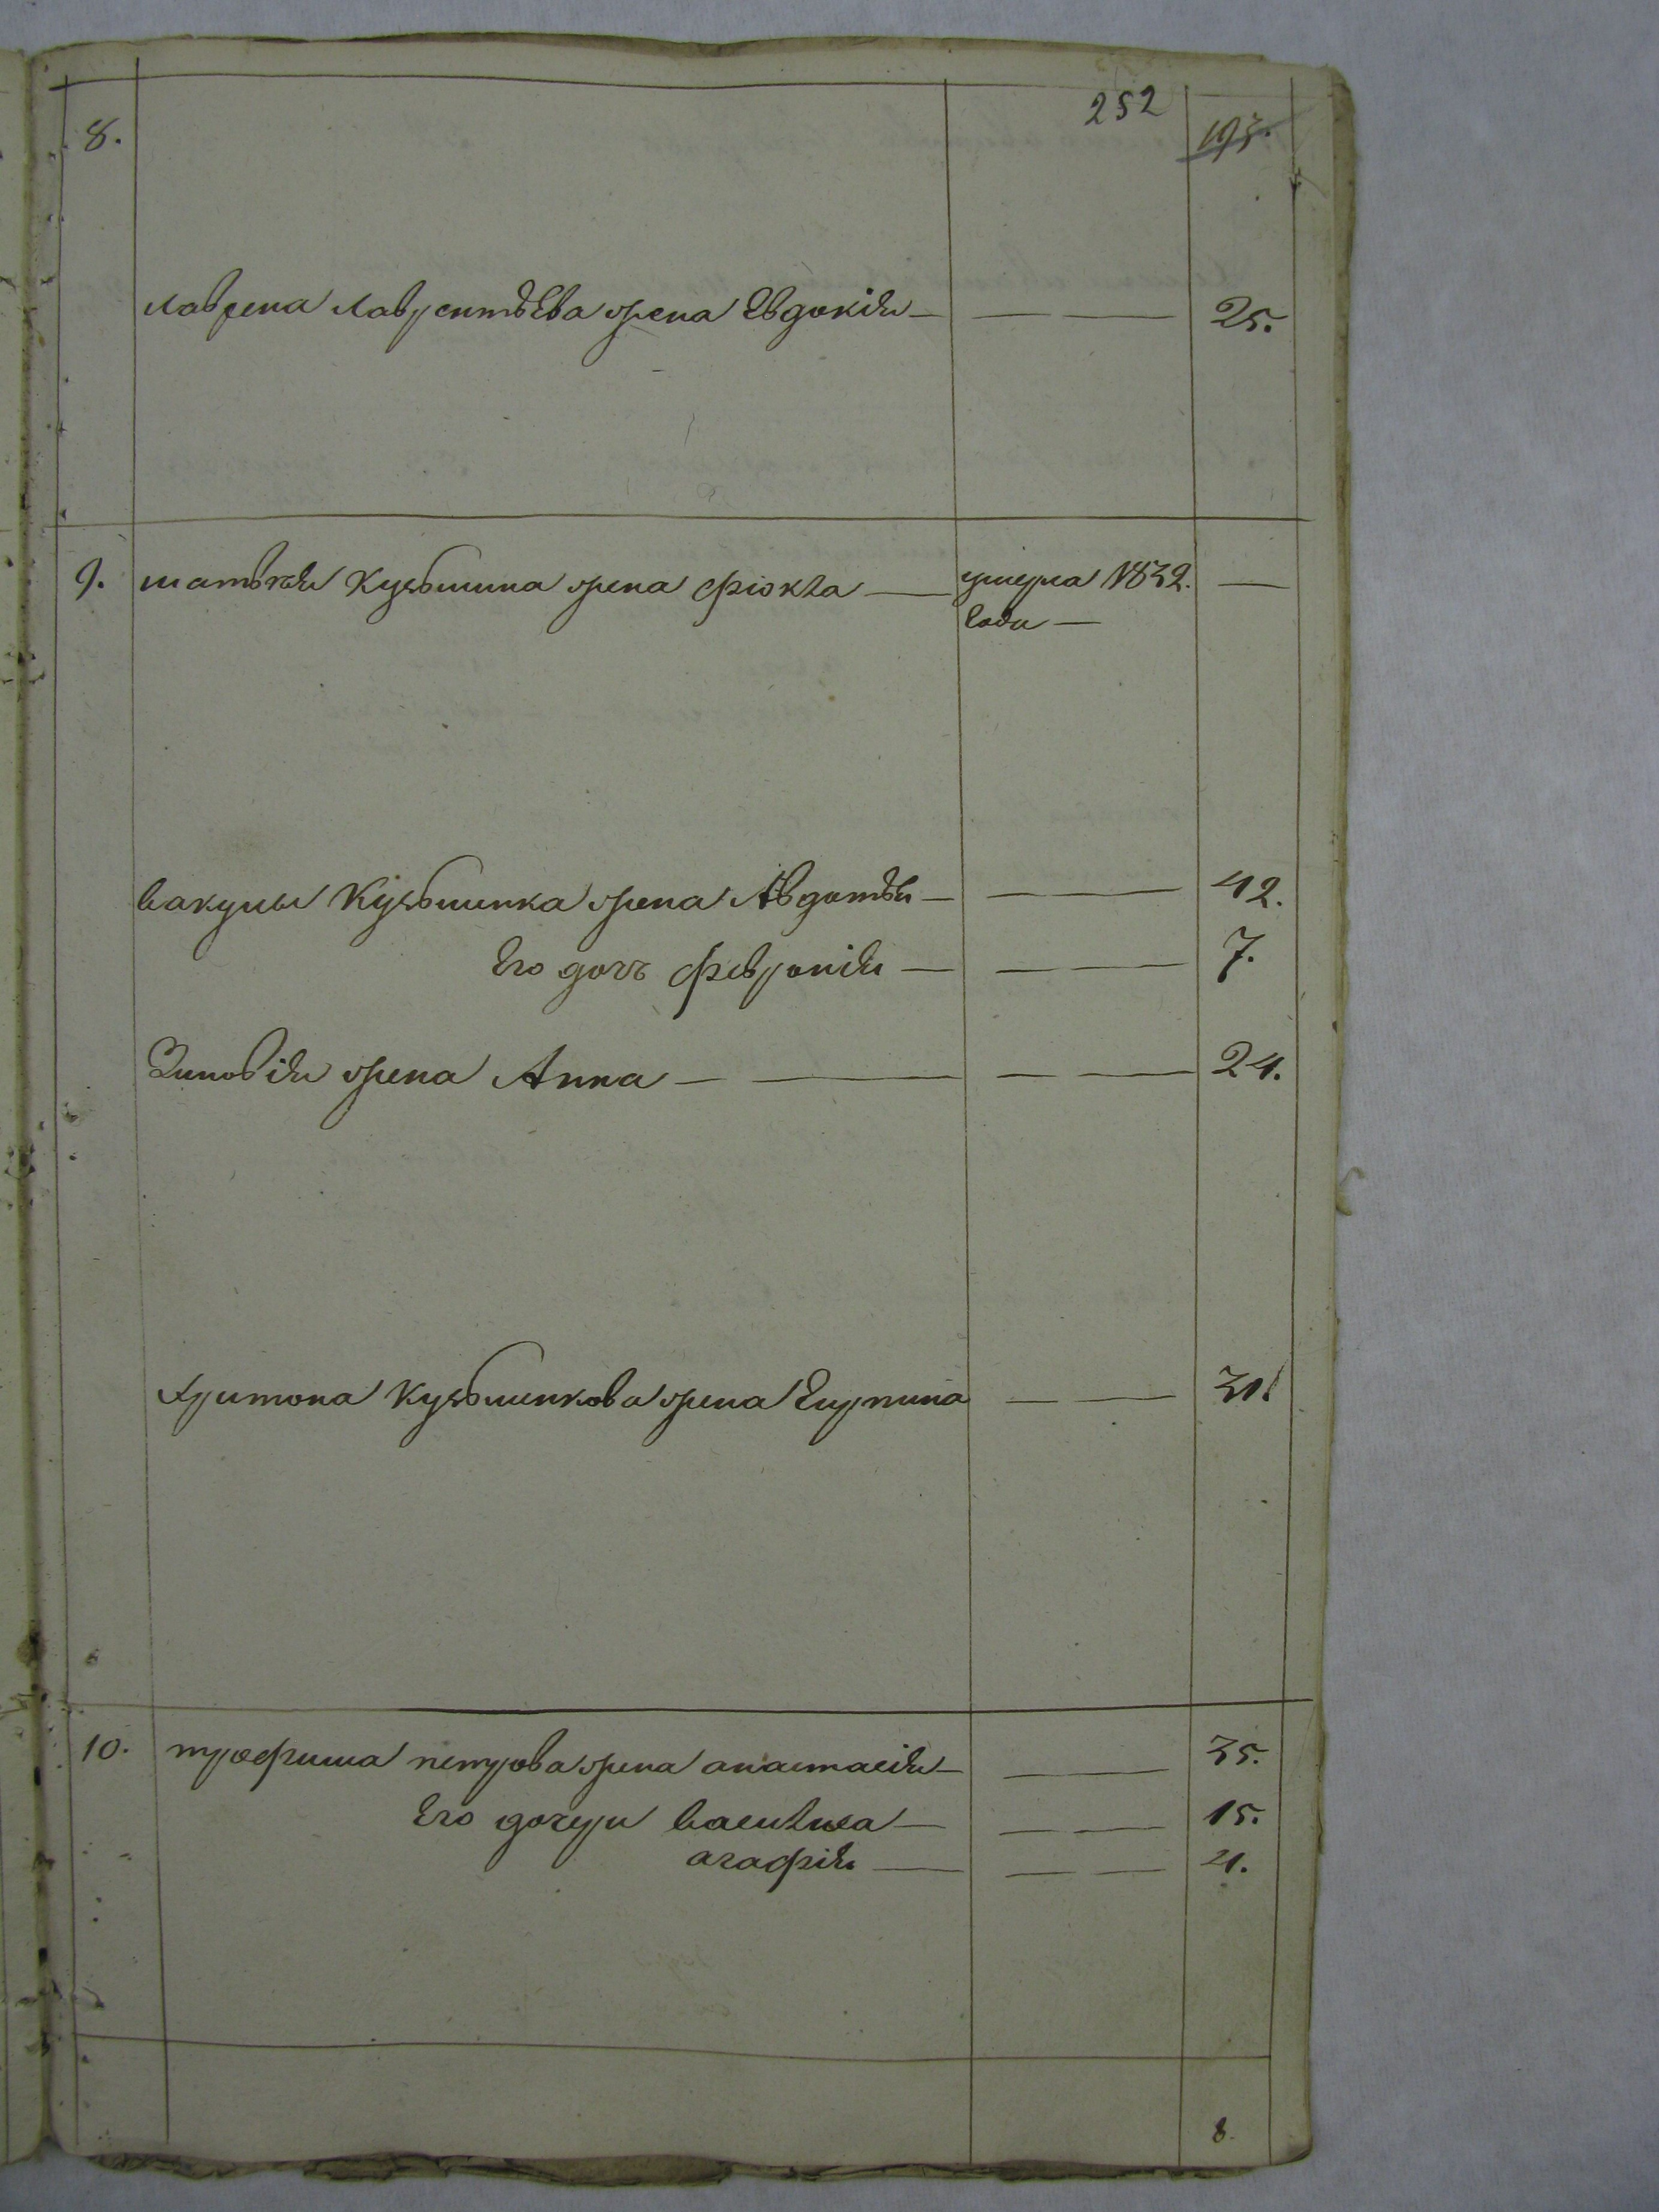 252
193.
8.
лаврена лаврентьева жена Евдокія — — — 25.
9. матвѣя Кузьмина жена фіокла — умерла 1832. —
года —
вакулы Кузьминка жена Авдотья — — — 42.
Его дочь февронія — — — 7.
Зиновія жена Анна — — — — 24.
Харитона Кузьминкова жена Ещрпина — — 31.
10. трофима петрова жена анастасія — — — 35.
Его дочери василиса — — — 15.
агафія — — — 4.
8.